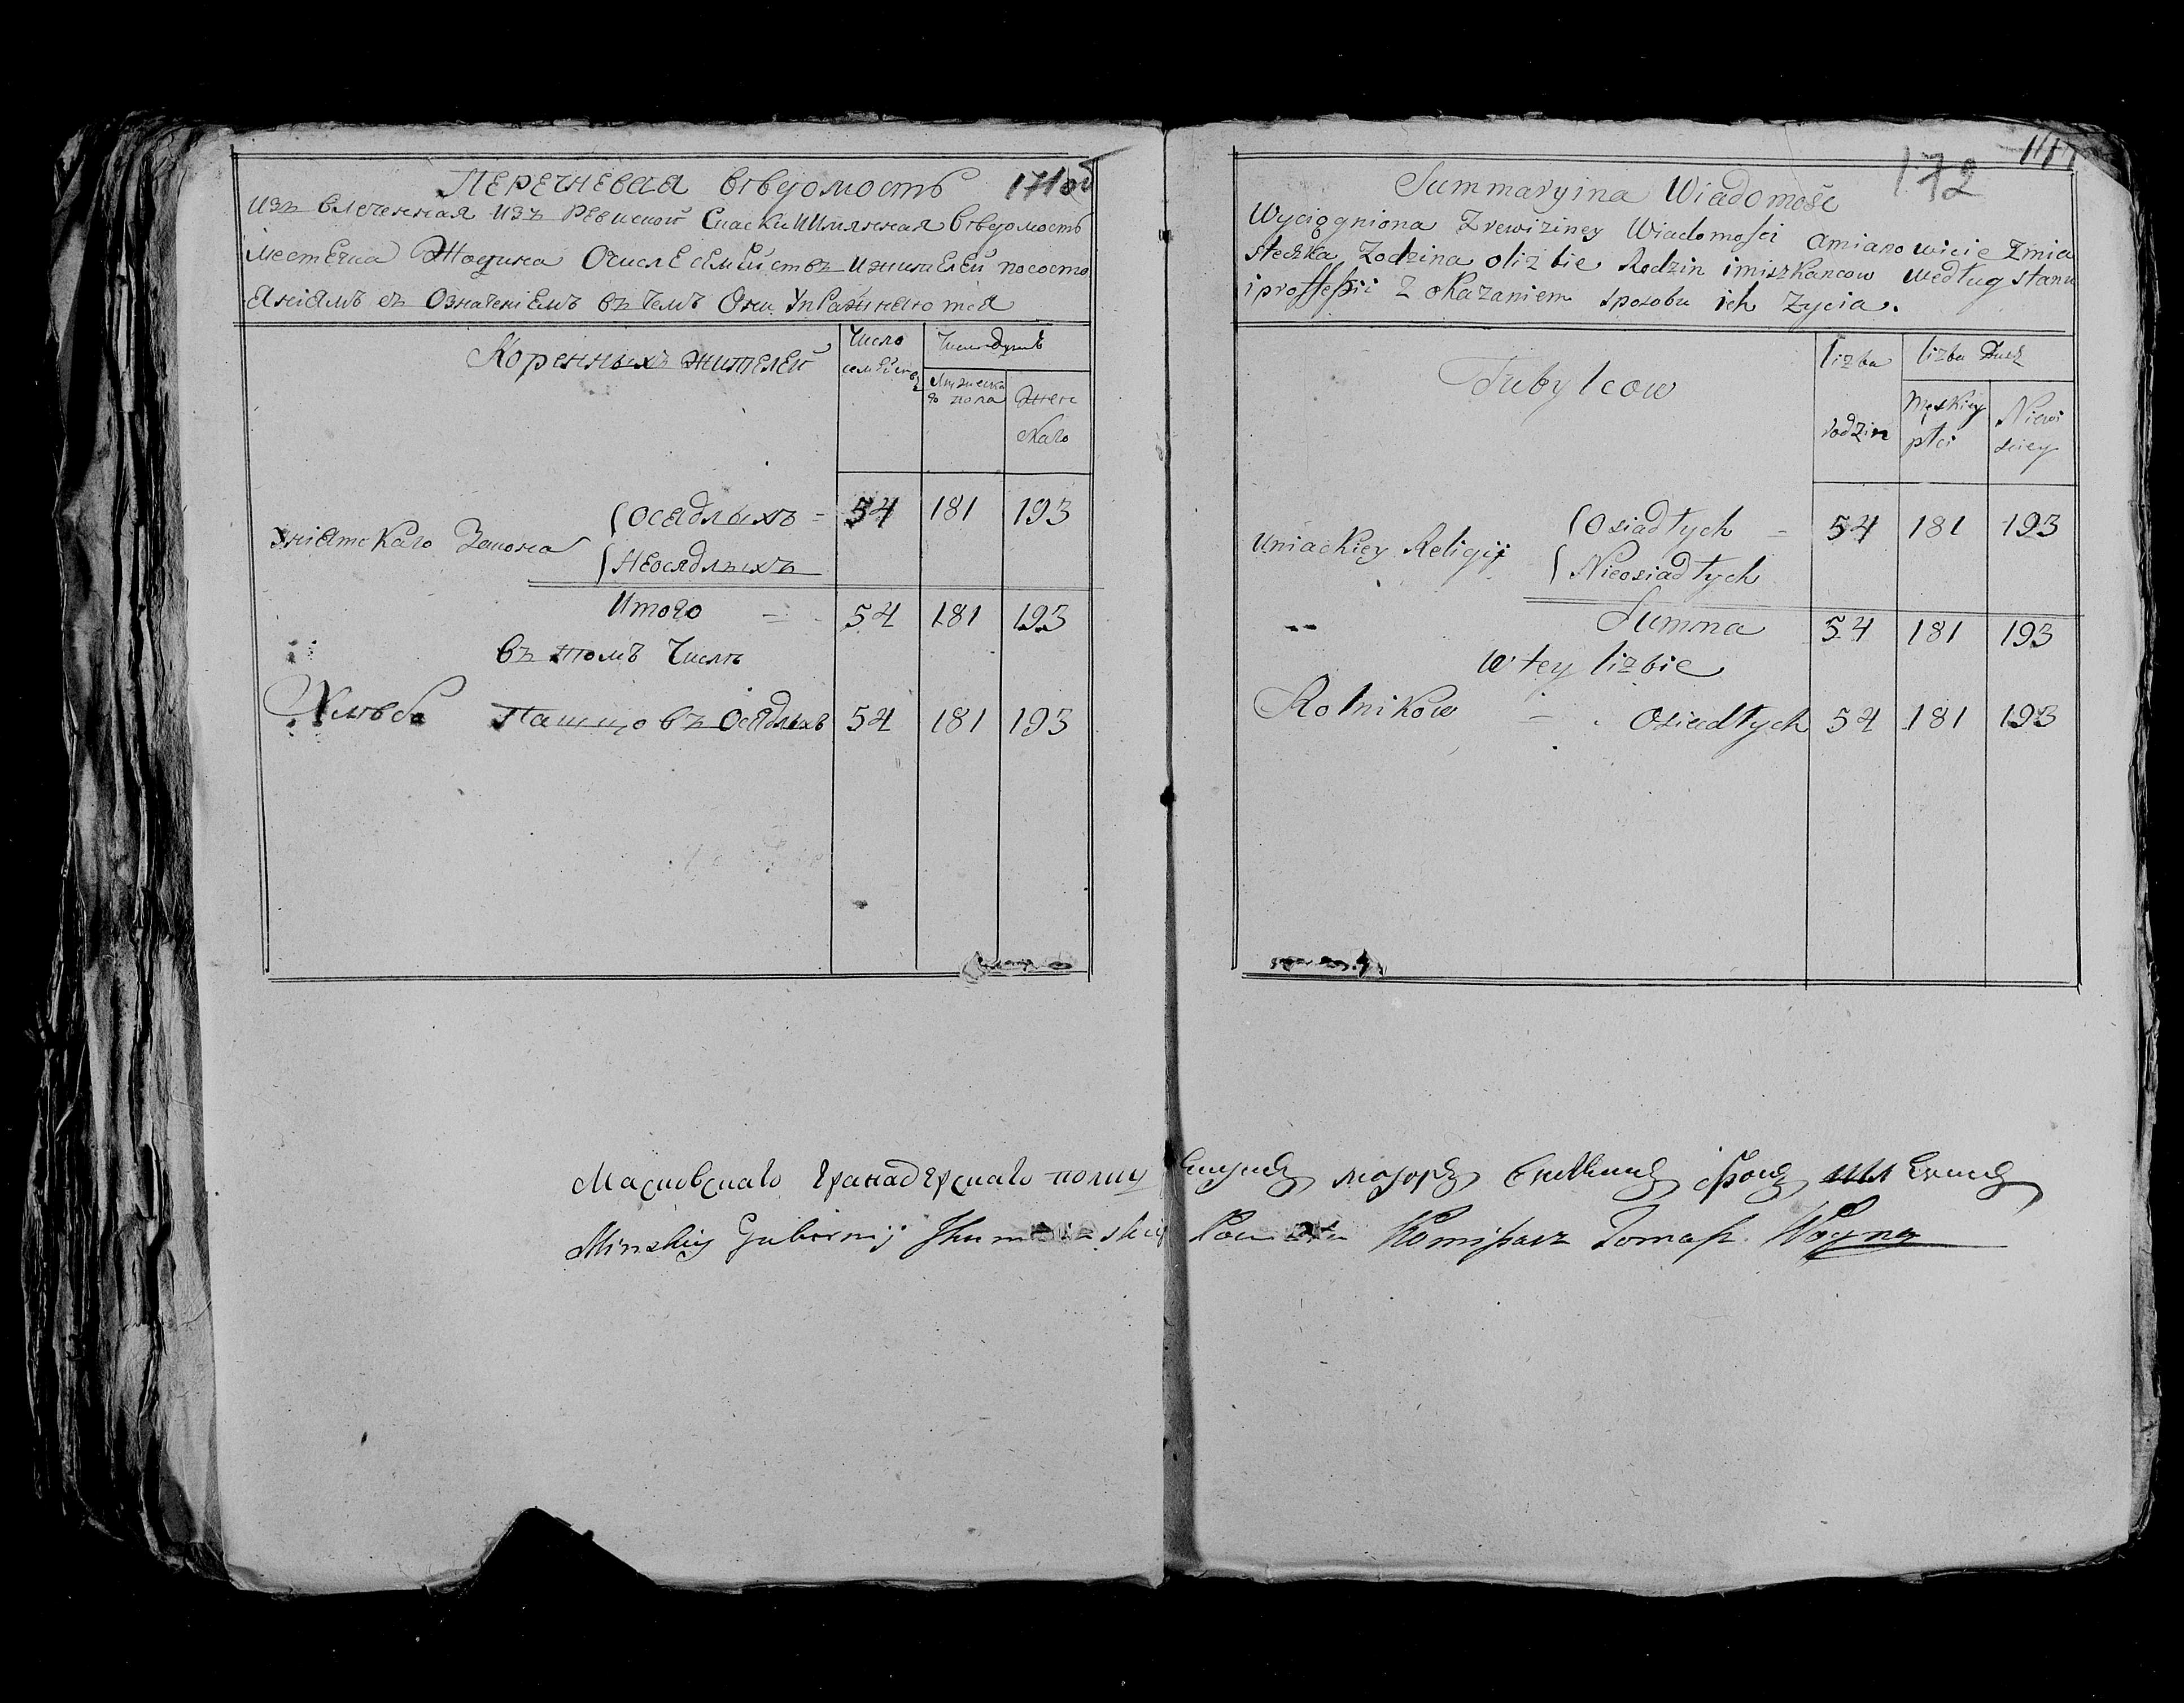 Перечневая вѣдомость 171об
Изъ влеченная изъ Ревиской Скаски Имянная вѣдомость
местечка Жодина О числе семействъ и жителей по состо
яніямъ съ Означеніемъ въ чемъ Они Упражняются
Коренныхъ жителей
Число семействъ
Число душъ
Мужеска го пола
женс каго
Уніятскаго Закона
Осядлыхъ = 54 181 193
Неосядлыхъ
Итого = 54 181 193
въ томъ числѣ
Хлѣбо пашцовъ Осядлыхъ 54 181 193
172
Summaryina Wiadomośc
Wyciągniona Zrewiziney Wiadomości amianowicie Zmia
steczka Zodzina olizbie Rodzin imiszkancow według stanu
iproffeſsii Z okazaniem sposobu ich Zycia.
Tubylcow
lizba rodzin
lizba Dusz
Męskiey płci
Niewi sciey
Uniackiey Religij
Osiadłych = 54 181 193
Nieosiadłych
Summa 54 181 193
w tey lizbie
Rolnikow - Osiadłych 54 181 193
Масковскаго Гранадерскаго полку маіоръ
Minskiey Gubernij Komiſsarz Tomaſz Woyna